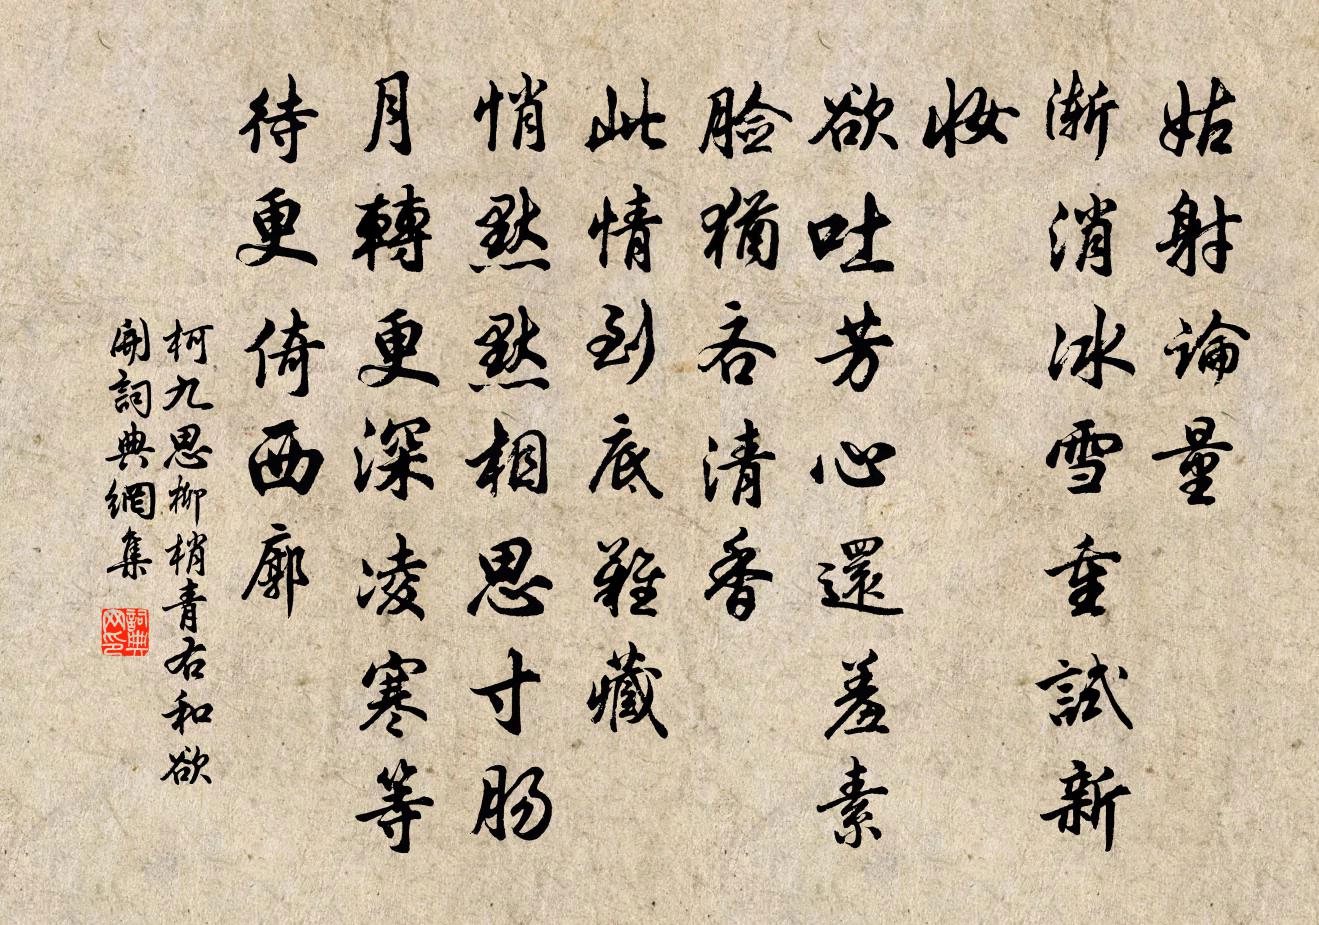 姑射論量
漸消冰雪重試新
妝
欲吐芳心還羞素
脸猶吝清香
此情到底難藏
悄默默相思寸肠
月轉更深凌寒等
待更倚西廓
柯九思柳梢青右和欲
開詞典網集
詞典网印